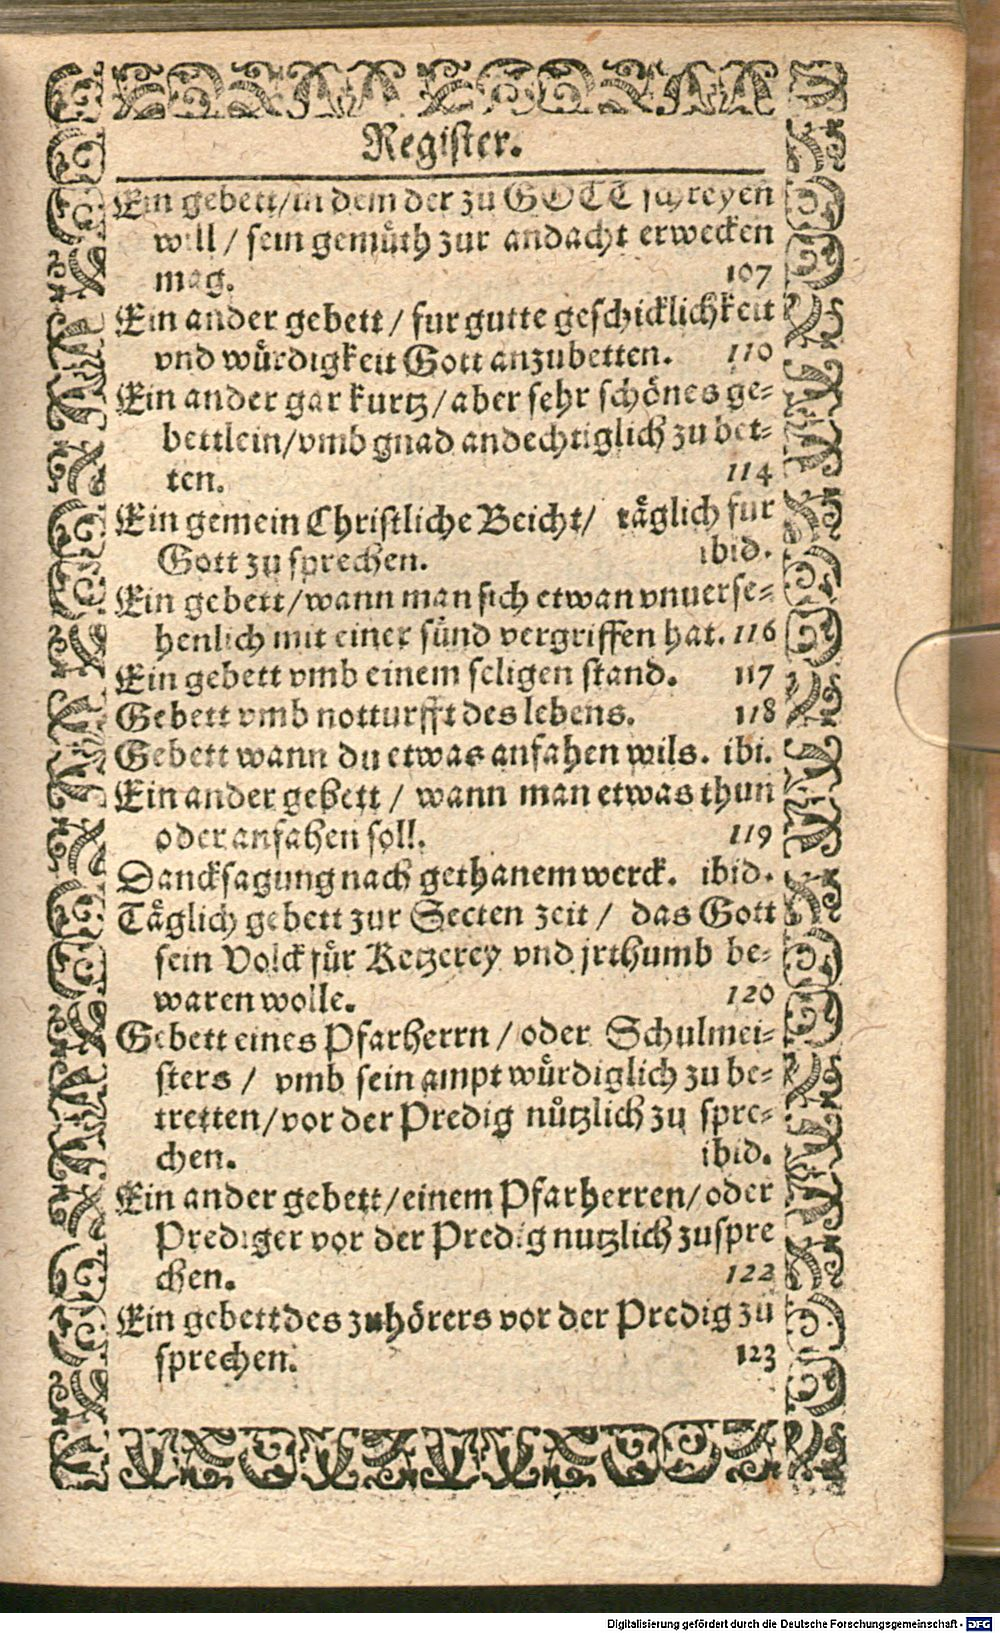 Register.
Ein gebett/in dem der zu GOTT schreyen
will / sein gemüth zur andacht erwecken
mag. 107
Ein ander gebett / fur gutte geschicklichkeit
vnd würdigkeit Gott anzubetten. 110
Ein ander gar kurtz/aber sehr schönes ge-
bettlein/vmb gnad andechtiglich zu bet-
ten. 114
Ein gemein Christliche Beicht/ täglich fur
Gott zu sprechen. ibid.
Ein gebett/wann man sich etwan vnuerse-
henlich mit einer sünd vergriffen hat. 116
Ein gebett vmb einem seligen stand. 117
Gebett vmb notturfft des lebens. 118
Gebett wann du etwas anfahen wils. ibi.
Ein ander gebett / wann man etwas thun
oder anfahen soll. 119
Dancksagung nach gethanem werck. ibid.
Täglich gebett zur Secten zeit / das Gott
sein Volck für Ketzerey vnd jrthumb be-
waren wolle. 120
Gebett eines Pfarherrn / oder Schulmei-
sters / vmb sein ampt würdiglich zu be-
tretten/vor der Predig nützlich zu spre-
chen. ibid.
Ein ander gebett/einem Pfarherren/oder
Prediger vor der Predig nutzlich zuspre
chen. 122
Ein gebett des zuhörers vor der Predig zu
sprechen. 123
Digitalisierung gefördert durch die Deutsche Forschungsgemeinschaft - DFG